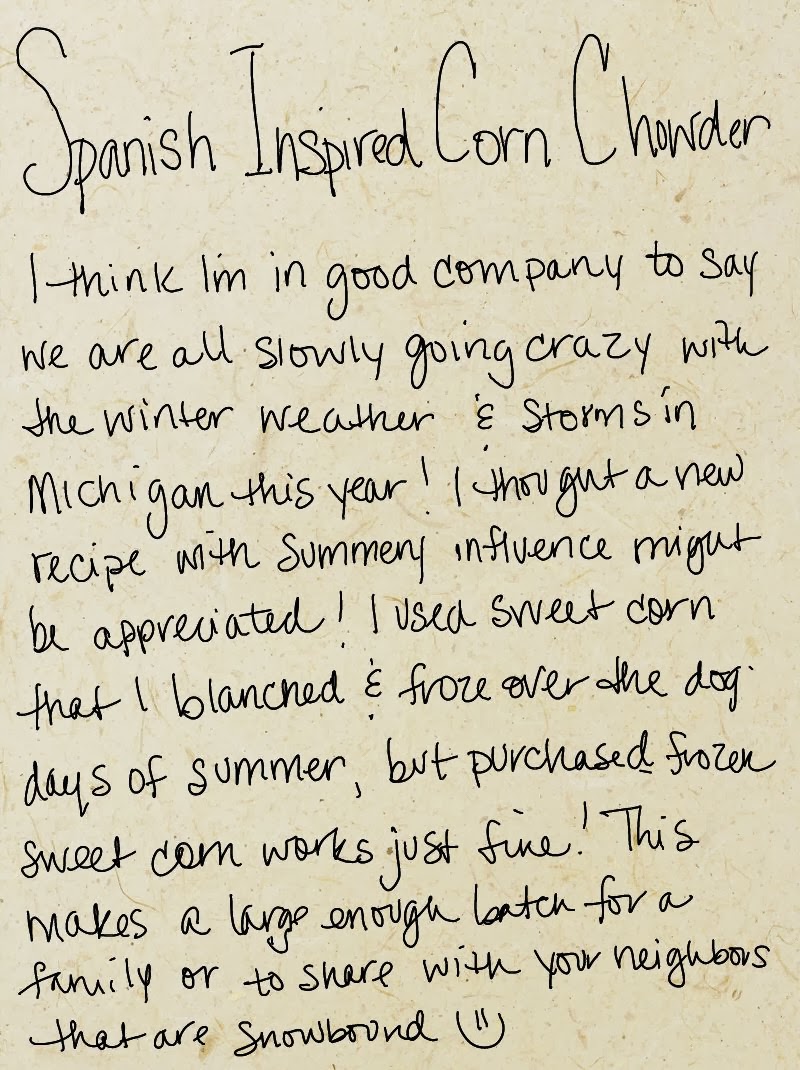 Spanish Inspired Corn Chowder
I think I'm in good company to say
we are all slowly going crazy with
the winter weather & storms in
Michigan this year! I thought a new
recipe with summery influence might
be appreciated! I used sweet corn
that I blanched & froze over the dog
days of summer, but purchased frozen
sweet corn works just fine! This
makes a large enough batch for a
family or to share with your neighbors
that are snowbound :)